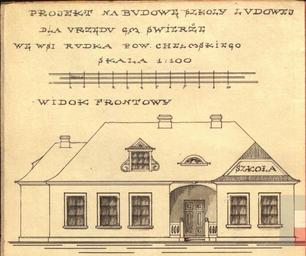 PROJEKT NA BUDOWĘ SZKOŁY LUDOWEJ
DLA URZĘDU GM. ŚWIERŻE
WE WSI RUDKA POW. CHEŁMSKIEGO
SKALA 1:100
WIDOK FRONTOWY
SZKOŁA